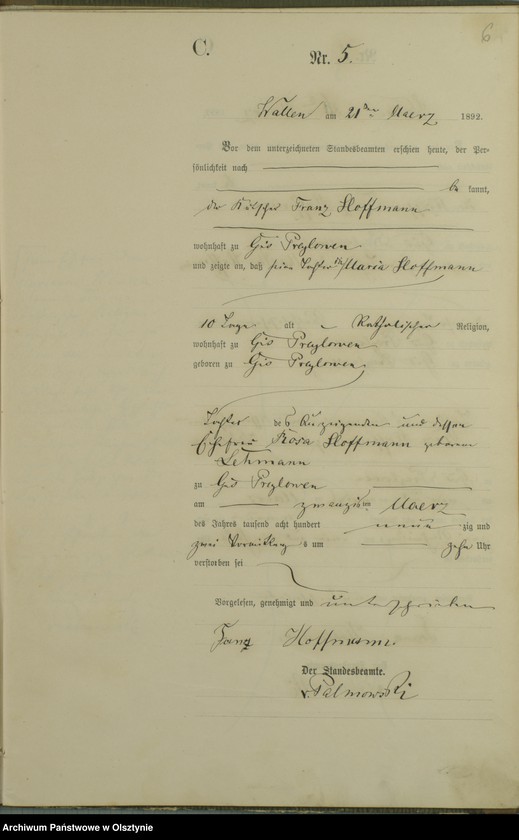 6
C.
Nr. 5.
Wallen am 21ten Maerz 1892.
Vor dem unterzeichneten Standesbeamten erschien heute, der Per-
sönlichkeit nach
be kannt,
der Franz Hoffmann
wohnhaft zu Gut Preylowen
und zeigte an, daß seine Tochter Maria Hoffmann
10 Tage alt Katholischer Religion,
wohnhaft zu Gut Preylowen
geboren zu Gut Preylowen
Tochter des Anzeigenden und dessen
Ehefrau Rosa Hoffmann geborene
Lehmann
zu Gut Preylowen
am zwanzigsten Maerz
des Jahres tausend acht hundert neun zig und
zwei Vormittag s um zehn Uhr
verstorben sei
Vorgelesen, genehmigt und unterschrieben
Franz Hoffmann.
Der Standesbeamte.
v. Palmowski
Archiwum Państwowe w Olsztynie